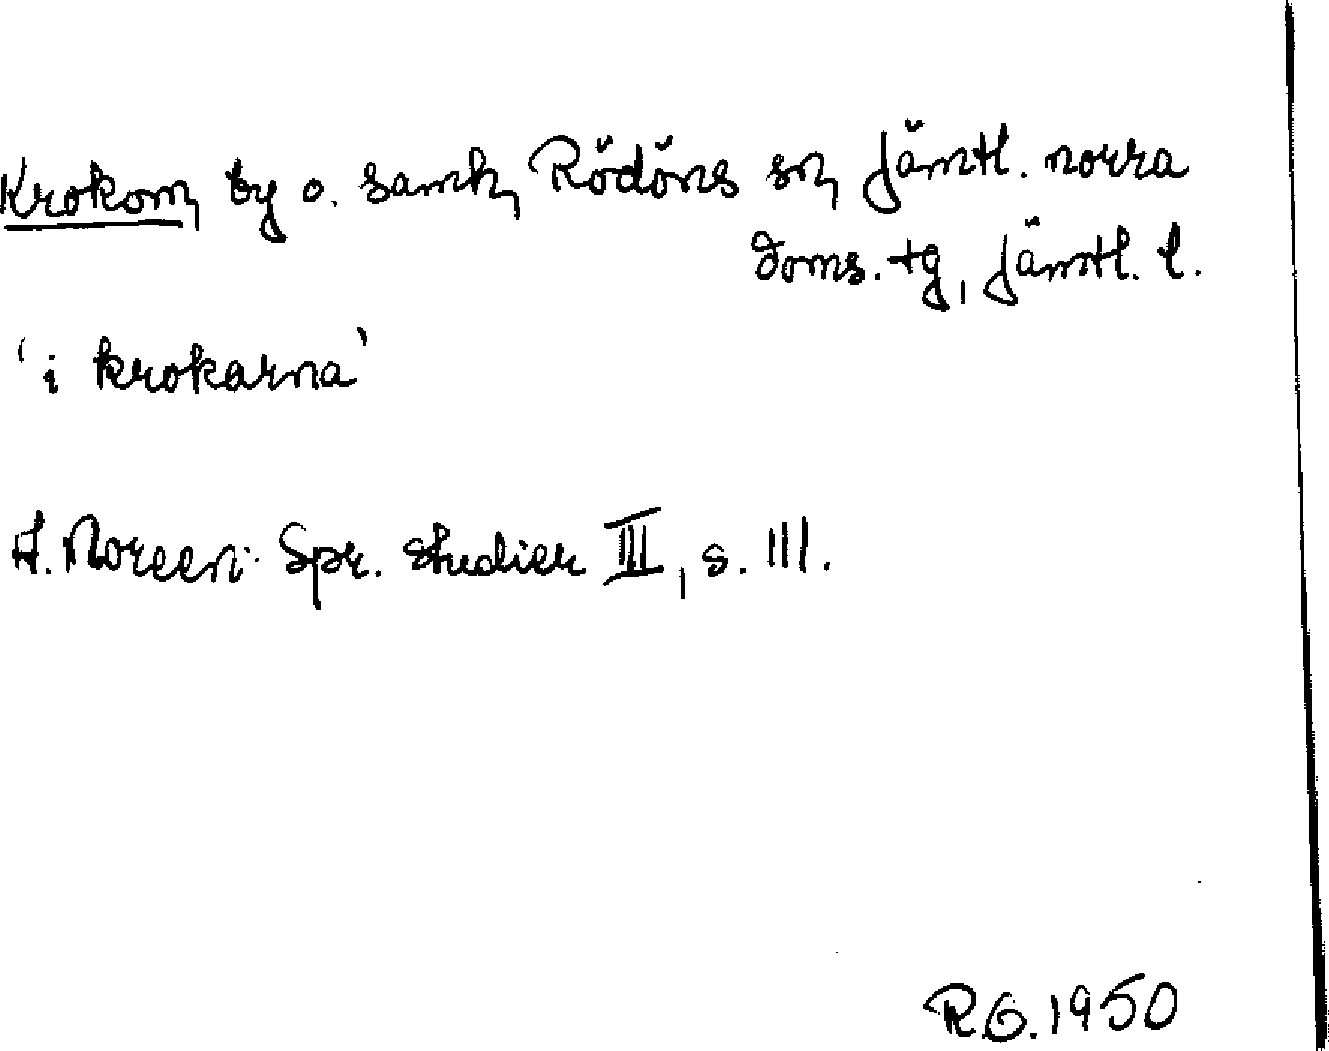 Krokom, by o. samh, Rödöns sn, Jämtl. norra
doms. tg, Jämtl. l.
'i krokarna'
A. Noreen: Spr. studier III, s. 111.
R.G. 1950